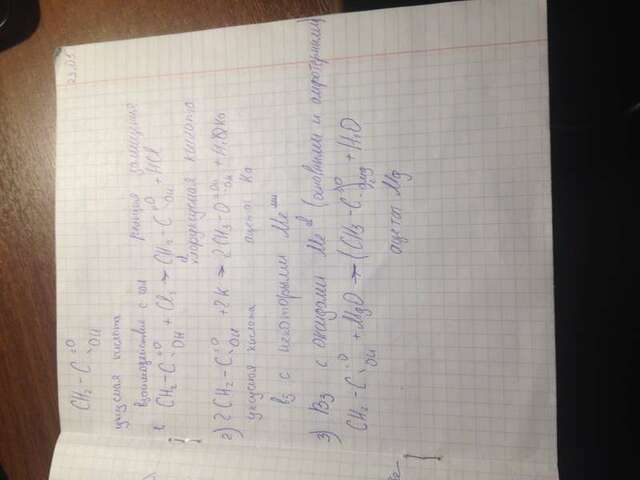 22.11.5
CH3-C=O
-OH
уксусная кислота
взаимодействие с гал реакция замещения
CH3-C=O-OH + Cl2 → CH2-C=O-OH + HCl
Cl
хлоруксусная кислота
2) 2CH3-C=O-OH + 2K → 2CH3-C=O-OK + H2
уксусная кислота ацетат K
вз с некоторыми Me ми
3) Вз с оксидами Me (основными и амфотерными)
CH3-C=O-OH + MgO → (CH3-C=O-O)2Mg + H2O
ацетат Mg